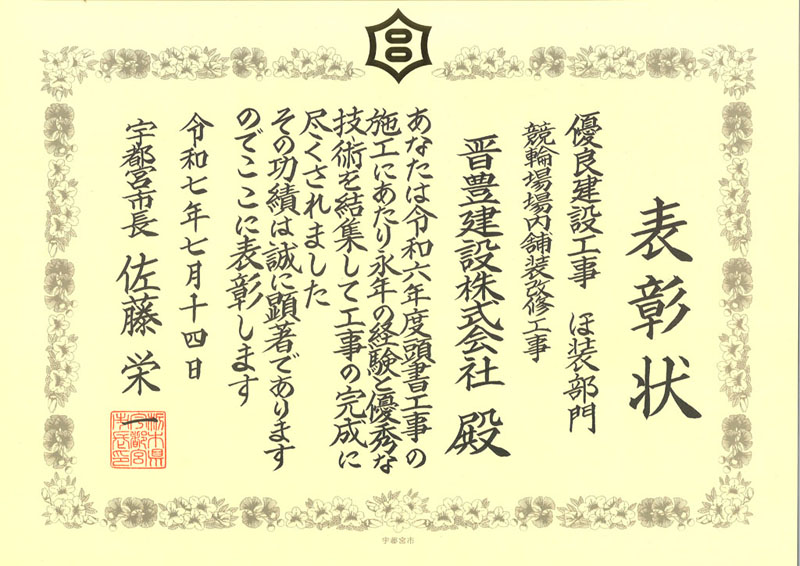 表彰状
優良建設工事　ほ装部門
競輪場場内舗装改修工事
晋豊建設株式会社　殿
あなたは令和六年度頭書工事の
施工にあたり永年の経験と優秀な
技術を結集して工事の完成に
尽くされました
その功績は誠に顕著であります
のでここに表彰します
令和七年七月十四日
宇都宮市長　佐藤栄一
栃木県
宇都宮
市長印
宇都宮市